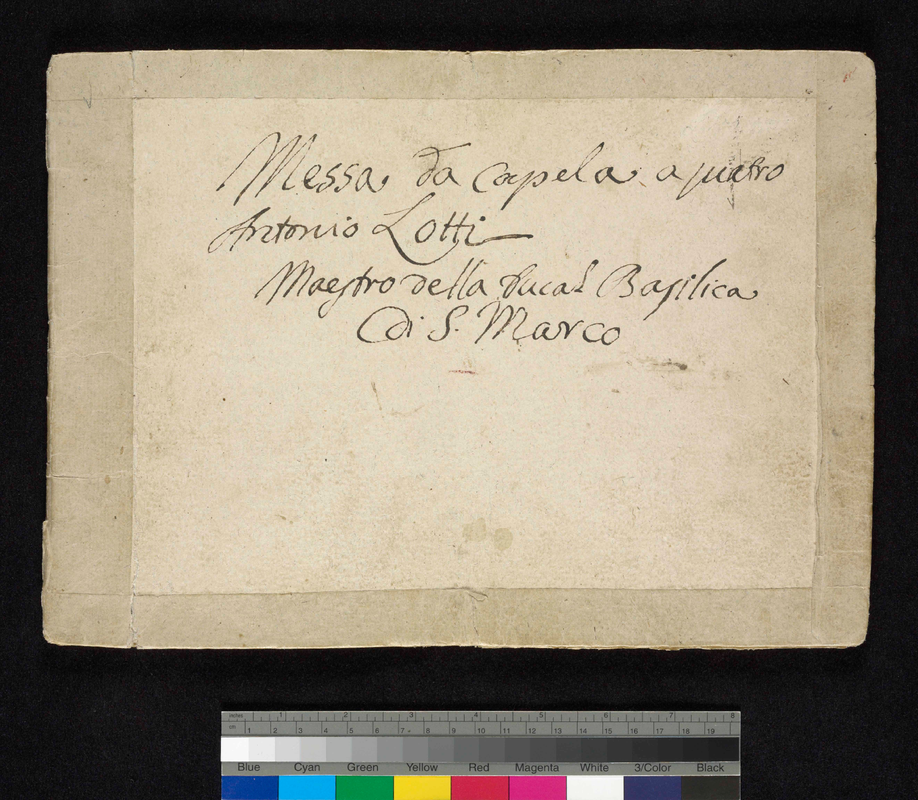 Messa da capela a quatro
Antonio Lotti
Maestro della Ducal Basilica
di S. Marco
inches 1 2 3 4 5 6 7 8
cm 1 2 3 4 5 6 7 8 9 10 11 12 13 14 15 16 17 18 19
Blue Cyan Green Yellow Red Magenta White 3/Color Black